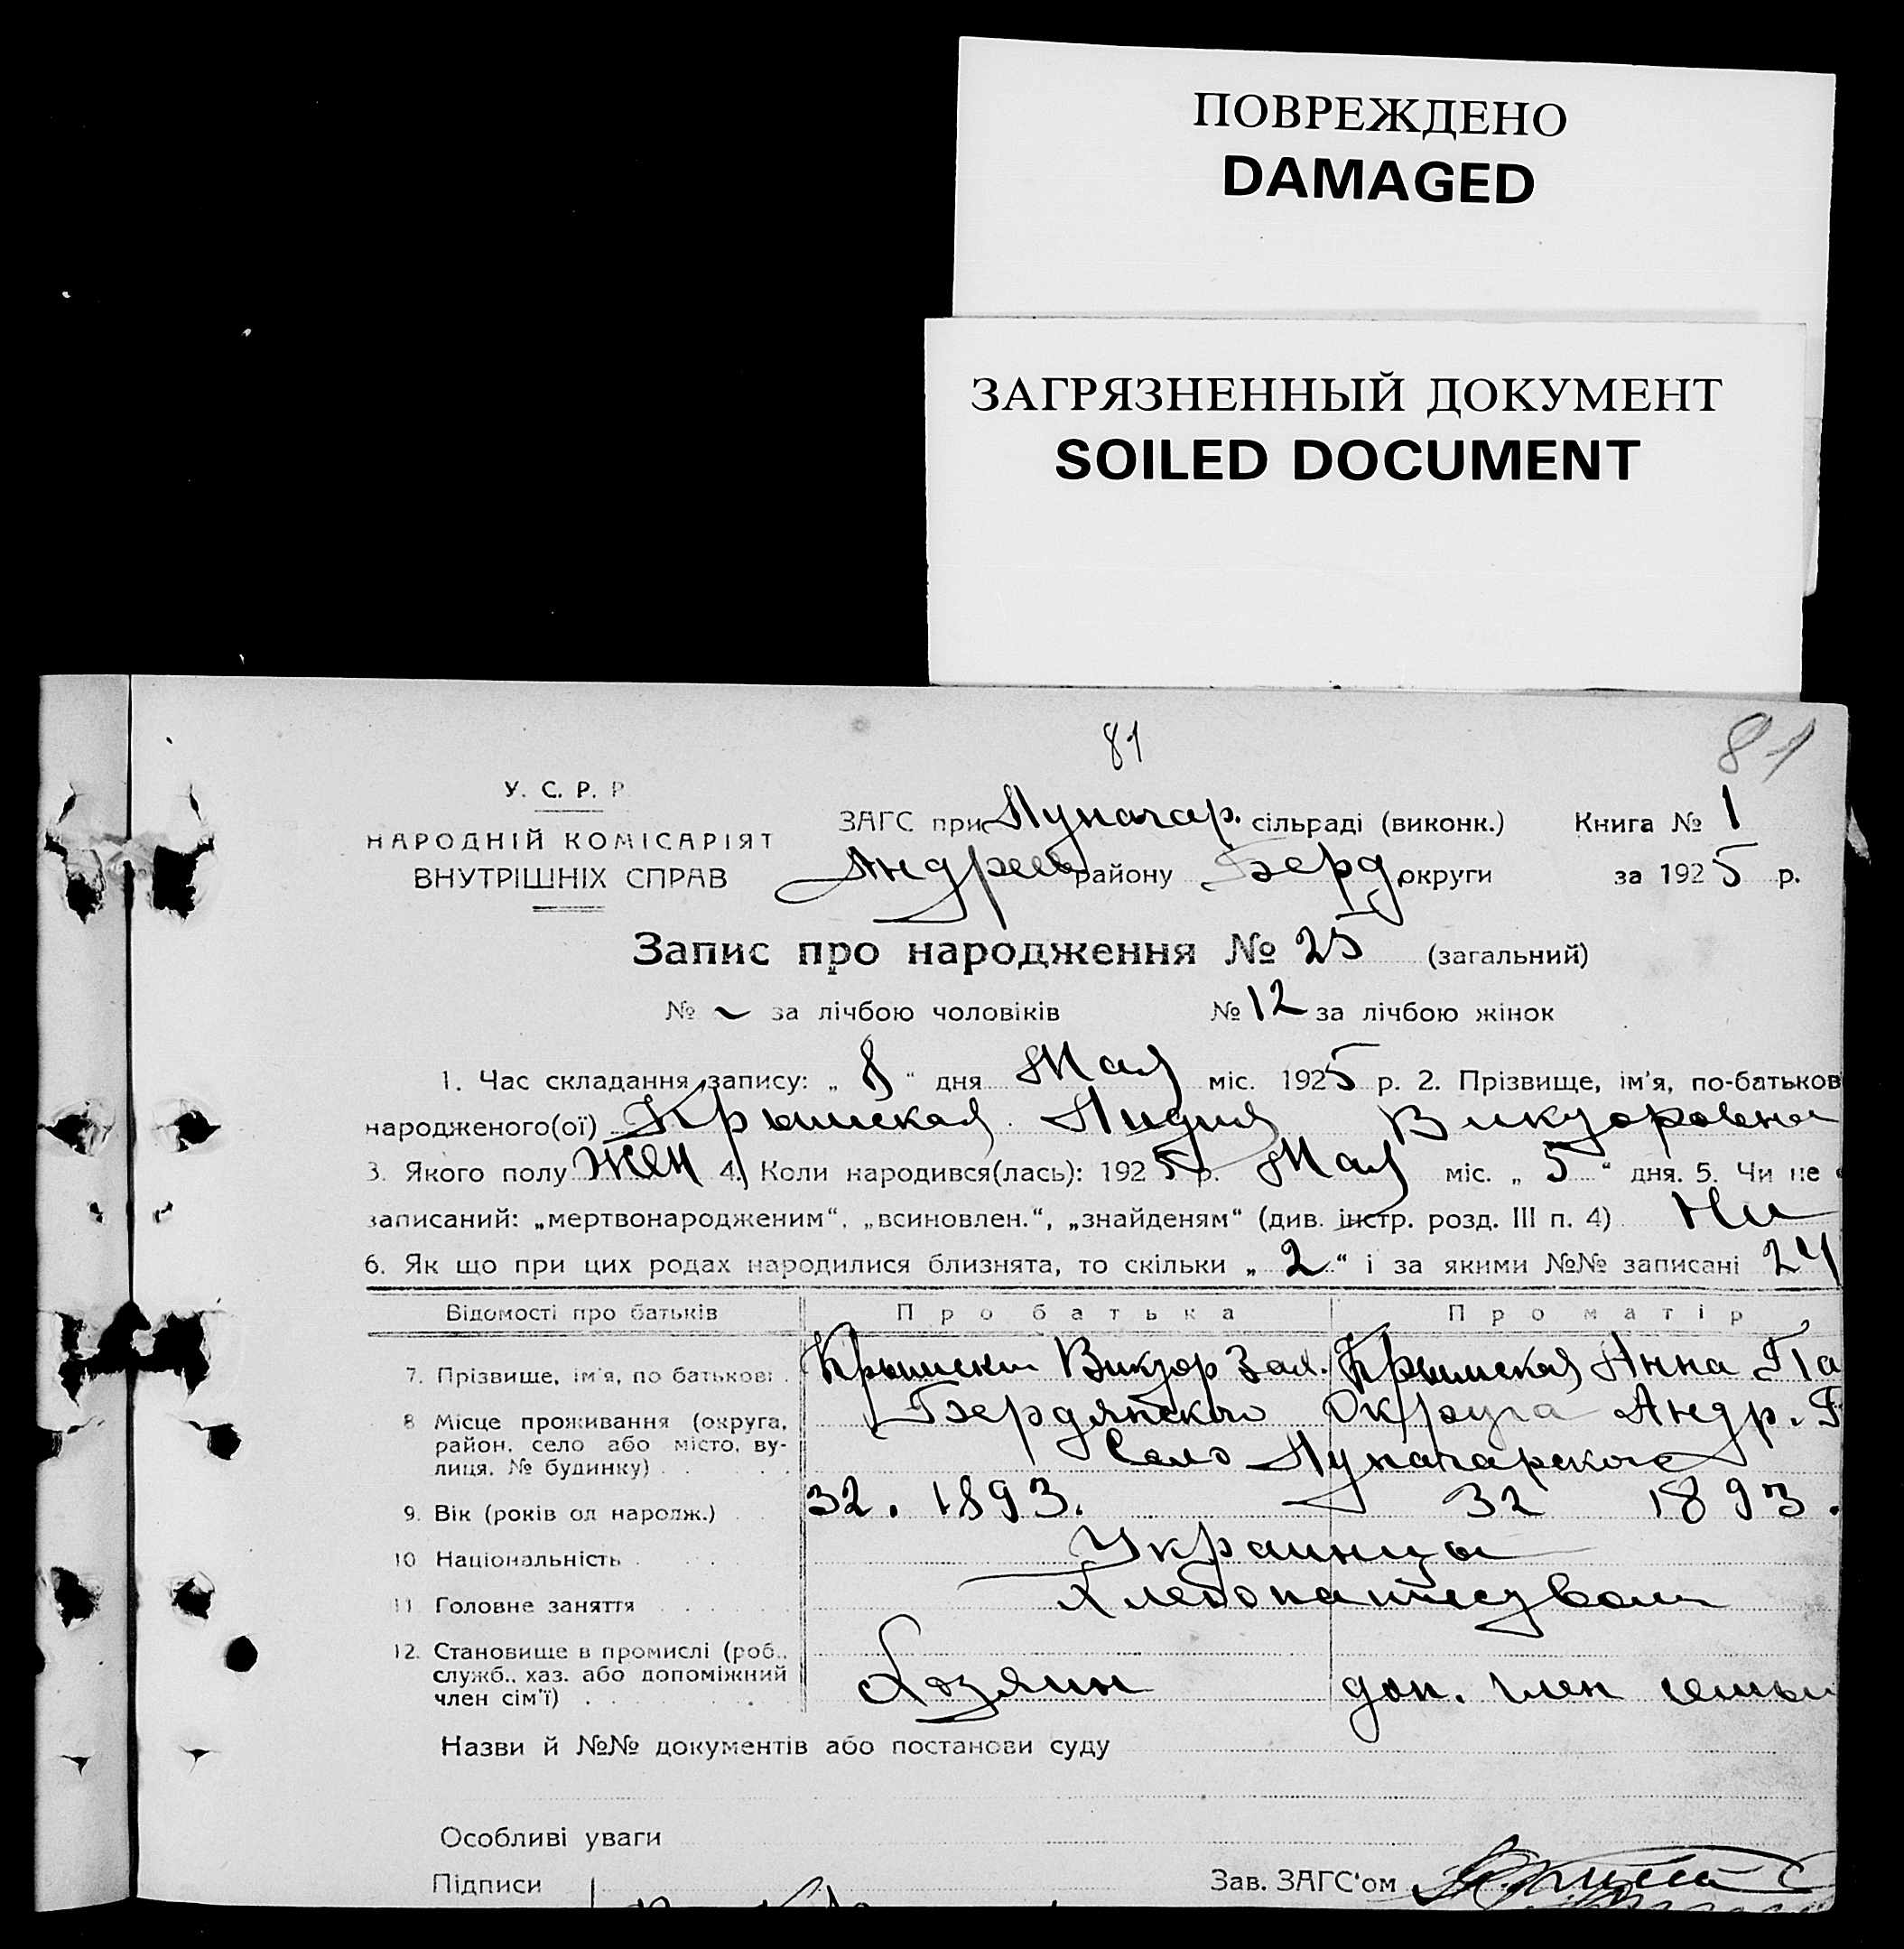 ПОВРЕЖДЕНО
DAMAGED
ЗАГРЯЗНЕННЫЙ ДОКУМЕНТ
SOILED DOCUMENT
81
81
У. С. Р. Р
НАРОДНІЙ КОМІСАРІЯТ
ВНУТРІШНІХ СПРАВ
ЗАГС при Луначар. сільраді (виконк.) Книга № 1
Андреев району Берд. округи за 1925 р.
Запис про народження № 25 (загальний)
№ ~ за лічбою чоловіків № 12 за лічбою жінок
1. Час складання запису: „ 8 “ дня Мая міс. 1925 р. 2. Прізвище, ім'я, по-батьков
народженого(ої) Крымская Лидия Викторовна
3. Якого полу жен 4. Коли народився(лась): 1925 р. Мая міс. „ 5 “ дня. 5. Чи не
записаний: „мертвонародженим“, „всиновлен.“, „знайденям“ (див. інстр. розд. III п. 4) Ни
6. Як що при цих родах народилися близнята, то скільки „ 2 “ і за якими №№ записані 24
Відомості про батьків Про батька Про матір
7. Прізвище, ім'я, по батькові . Крымски Виктор Крымская Анна Па
8 Місце проживання (округа, Бердянского Округа Андр. Р
район, село або місто, ву- Село Луначарское
лиця, № будинку) . . .
9. Вік (років од народж.) . . 32. 1893. 32 1893.
10 Національність . . . . Украинцы
11 Головне заняття . . . .
12. Становище в промислі (роб.,
служб., хаз. або допоміжний Хозяин доп. член семьи
член сім'ї) . . . .
Назви й №№ документів або постанови суду
Особливі уваги
Підписи Зав. ЗАГС'ом